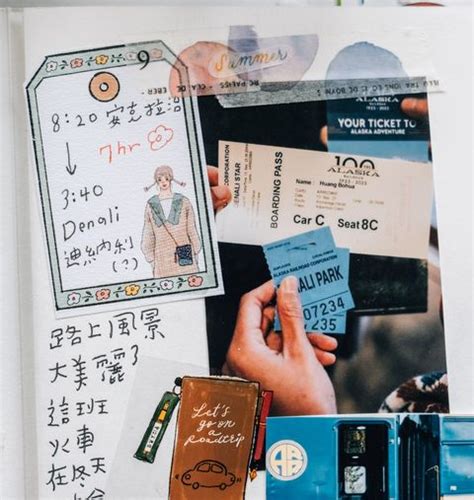 Summer
8:20 安克拉治
↓
7hr
3:40
Denali
迪納利
(?)
路上風景
太美麗了
這班
火車
在冬天
Let's
go on
a
Roadtrip
ALASKA
1923-2023
YOUR TICKET TO
ALASKA ADVENTURE
CORPORATION
DENALI STAR
BOARDING PASS
100
ALASKA
1923 - 2023
Name : Huang Bohua
Car C Seat 8C
ALASKA RAILROAD CORPORATION
NALI PARK
07234
235